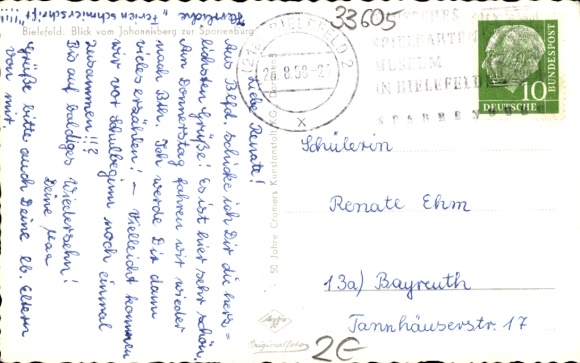 Herrliche "Ferienschmiererschrift"!!!!
Bielefeld. Blick vom Johannisberg zur Sparrenburg
Liebe Renate!
Aus Bfld schicke ich Dir die herz=
lichsten Grüße! Es ist hier sehr schön.
Am Donnerstag fahren wir wieder
nach Bth. Ich werde Dir dann
vieles erzählen! – Vielleicht kommen
wir vor Schulbeginn noch einmal
zusammen!!?
Bis auf baldiges Wiedersehn!
Deine
Grüße bitte auch Deine lb. Eltern
von mir.
50 Jahre Cramers Kunstanstalt KG
Agfa
Originalfoto
33605
(21a) BIELEFELD 2
26.8.58-21
x
SPIELKARTEN
MUSEUM
IN BIELEFELD
10
DEUTSCHE
BUNDESPOST
Schülerin
Renate Ehm
13a) Bayreuth
Tannhäuserstr. 17
2€